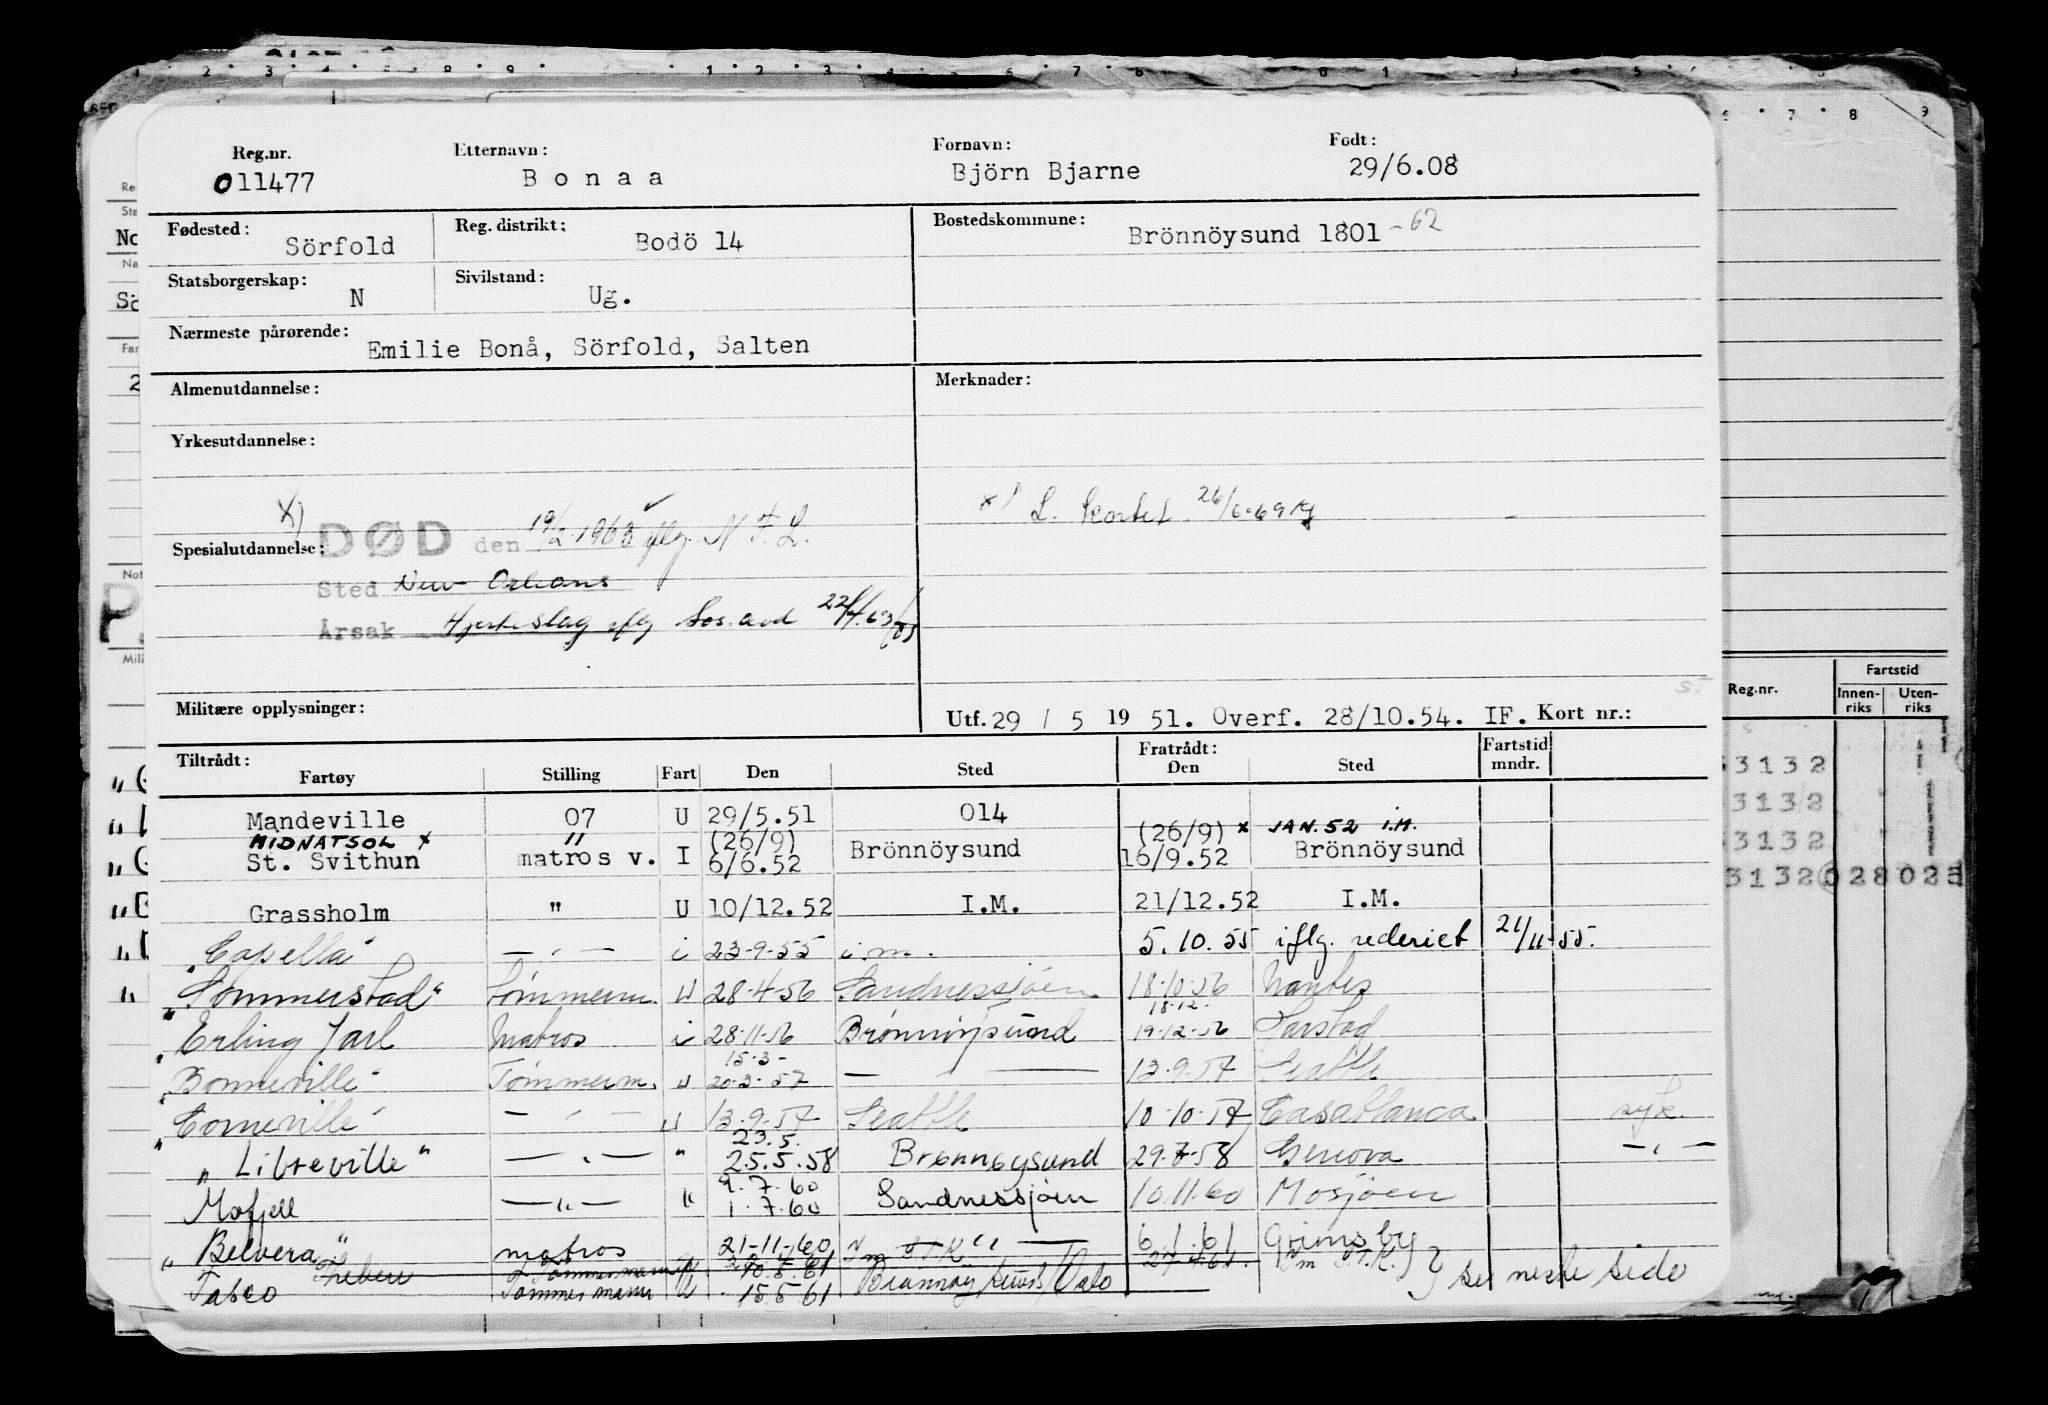 Reg.nr. Etternavn: Fornavn: Født:
011477 Bonaa Björn Bjarne 29/6.08
Fødested: Sörfold Reg. distrikt: Bodö 14 Bostedskommune: Brönnöysund 1801 - 62
Statsborgerskap: N Sivilstand: Ug.
Nærmeste pårørende: Emilie Bonå, Sörfold, Salten
Almenutdannelse: Merknader:
Yrkesutdannelse:
x) L. kortet 26/6-69
x)
Spesialutdannelse: DØD den 19/2 1963 iflg. N.F.L.
Sted New Orleans
Årsak Hjerteslag iflg Sos. avd 22/4.63
Militære opplysninger: Utf. 29 / 5 19 51. Overf. 28/10.54. IF. Kort nr.:
Tiltrådt: Fratrådt: Fartstid
Fartøy Stilling Fart Den Sted Den Sted mndr.
Mandeville 07 U 29/5.51 014
MIDNATSOL x " (26/9) (26/9) x JAN. 52 I.M.
St. Svithun matros v. I 6/6.52 Brönnöysund 16/9.52 Brönnöysund
Grassholm " U 10/12.52 I.M. 21/12.52 I.M.
"Capella" — " — i 23-9-55 i.m. 5.10.55 iflg. rederiet 21/11-55.
"Sommerstad" Tömmerm. U 28-4-56 Sandnessjöen 18-10-56 Nantes
18-12-
"Erling Jarl Matros i 28-11-56 Brönnöysund 19-12-56 Harstad
15-3-
"Bonneville" Tömmerm. U 20-3-57 — — 13-9-57 Seattle
"Corneville" — " — U 13-9-57 Seattle 10-10-57 Casablanca syk.
23.5.
"Libreville" — " — " 25.5.58 Brønnøysund 29.7-58 Genova — " —
9.7.60
Mofjell — " — " 1.7.60 Sandnessjöen 10.11.60 Mosjöen
"Belvera" matros 21-11-60 6.1.61 Grimsby
Theben Tømmermann 27.4.61.
Tasco Tømmermann U 15.5 61 Brønnøysund/Oslo
se neste side
Reg.nr. Fartstid
Innen-riks Uten-riks
3132
3132
3132
3132 028 025